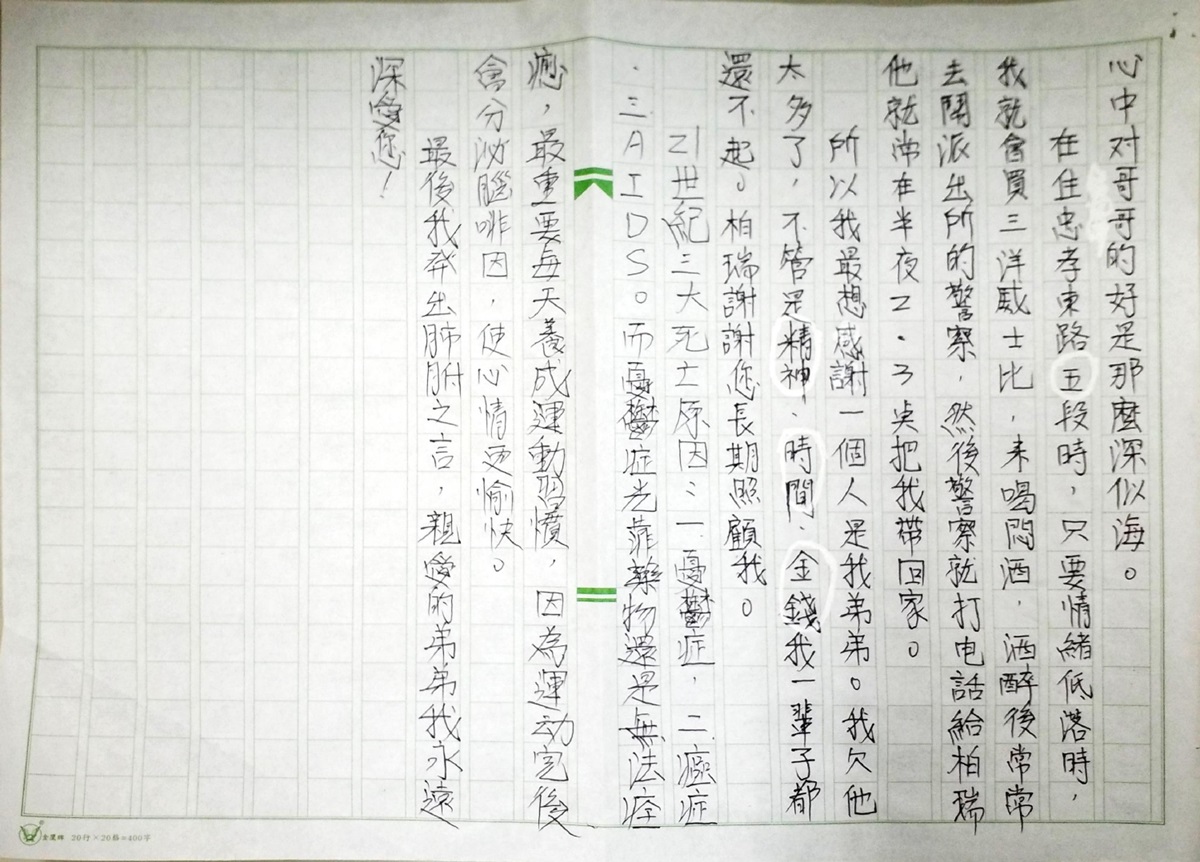 心中对哥哥的好是那麼深似海。
在住忠孝東路五段時，只要情緒低落時，
我就會買三洋威士比，來喝悶酒，酒醉後常常
去鬧派出所的警察，然後警察就打电話給柏瑞
他就常在半夜2、3点把我帶回家。
所以我最想感謝一個人是我弟弟。我欠他
太多了，不管是精神、時間、金錢我一輩子都
還不起。柏瑞謝謝您長期照顧我。
21世紀三大死士原因：一憂鬱症，二癌症
，三AIDS。而憂鬱症光靠藥物還是無法痊
癒，最重要每天養成運動習慣，因為運动完後
會分泌腦啡因，使心情更愉快。
最後我发出肺腑之言，親愛的弟弟我永遠
深愛您！
20行×20格=400字